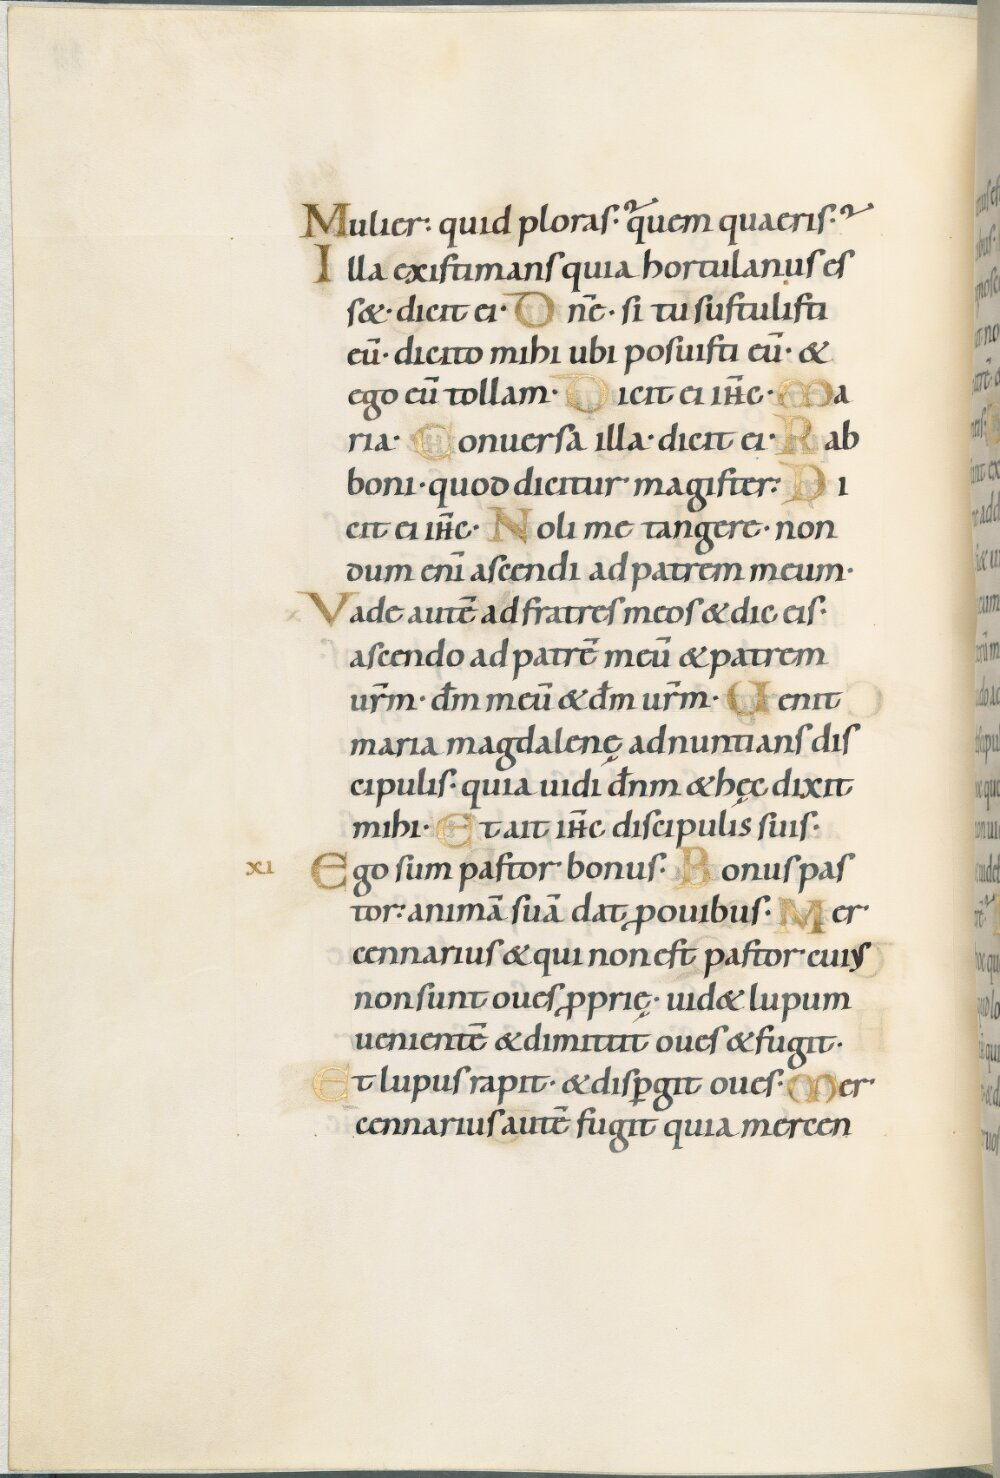 Mulier: quid ploras· quem quaeris·
Illa existimans quia hortulanus es
s&· dicit ei· Dnē· si tu sustulisti
eū· dicito mihi ubi posuisti eū· &
ego eū tollam· Dicit ei ihc̄· Ma
ria· Conuersa illa· dicit ei· Rab
boni· quod dicitur magister: Di
cit ei ihc̄· Noli me tangere· non
dum enī ascendi ad patrem meum·
x Vade autē ad fratres meos & dic eis·
ascendo ad patrē meū & patrem
ur̄m· dm̄ meū & dm̄ ur̄m· Uenit
maria magdalenę adnuntians dis
cipulis· quia uidi dn̄m & hęc dixit
mihi· Et ait ihc̄ discipulis suis·
xi Ego sum pastor bonus· Bonus pas
tor: animā suā dat ꝓ ouibus· Mer
cennarius & qui non est pastor cuiꝰ
non sunt oues ꝓprię· uid& lupum
uenientē & dimittit oues & fugit·
Et lupus rapit· & disꝑgit oues· Mer
cennarius autē fugit quia mercen